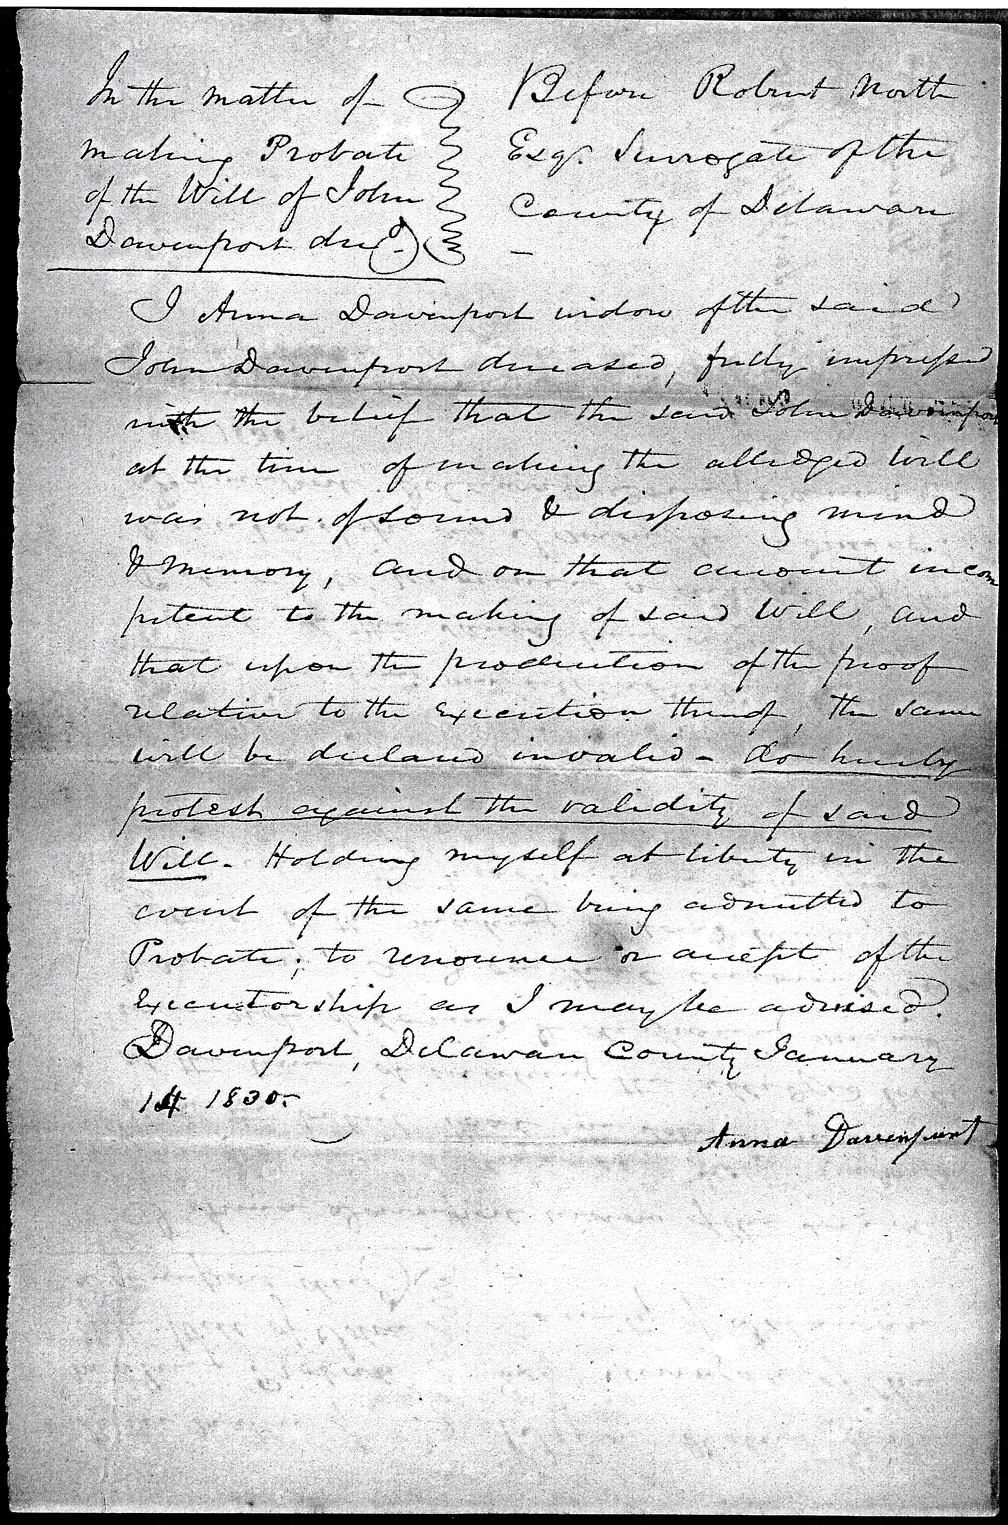 In the matter of
making Probate
of the Will of John
Davenport decd.
Before Robert North
Esqr. Surrogate of the
County of Delaware
I Anna Davenport widow of the said
John Davenport deceased, fully impressed
with the belief that the said John Davenport
at the time of making the alledged Will
was not of sound & disposing mind
& memory, and on that account incom
petent to the making of said Will, and
that upon the production of the proof
relative to the Execution thereof, the same
will be declared invalid - do hereby
protest against the validity of said
Will. Holding myself at liberty in the
event of the same being admitted to
Probate; to renounce or accept of the
Executorship as I may be advised.
Davenport, Delaware County January
14 1830.
Anna Davenport